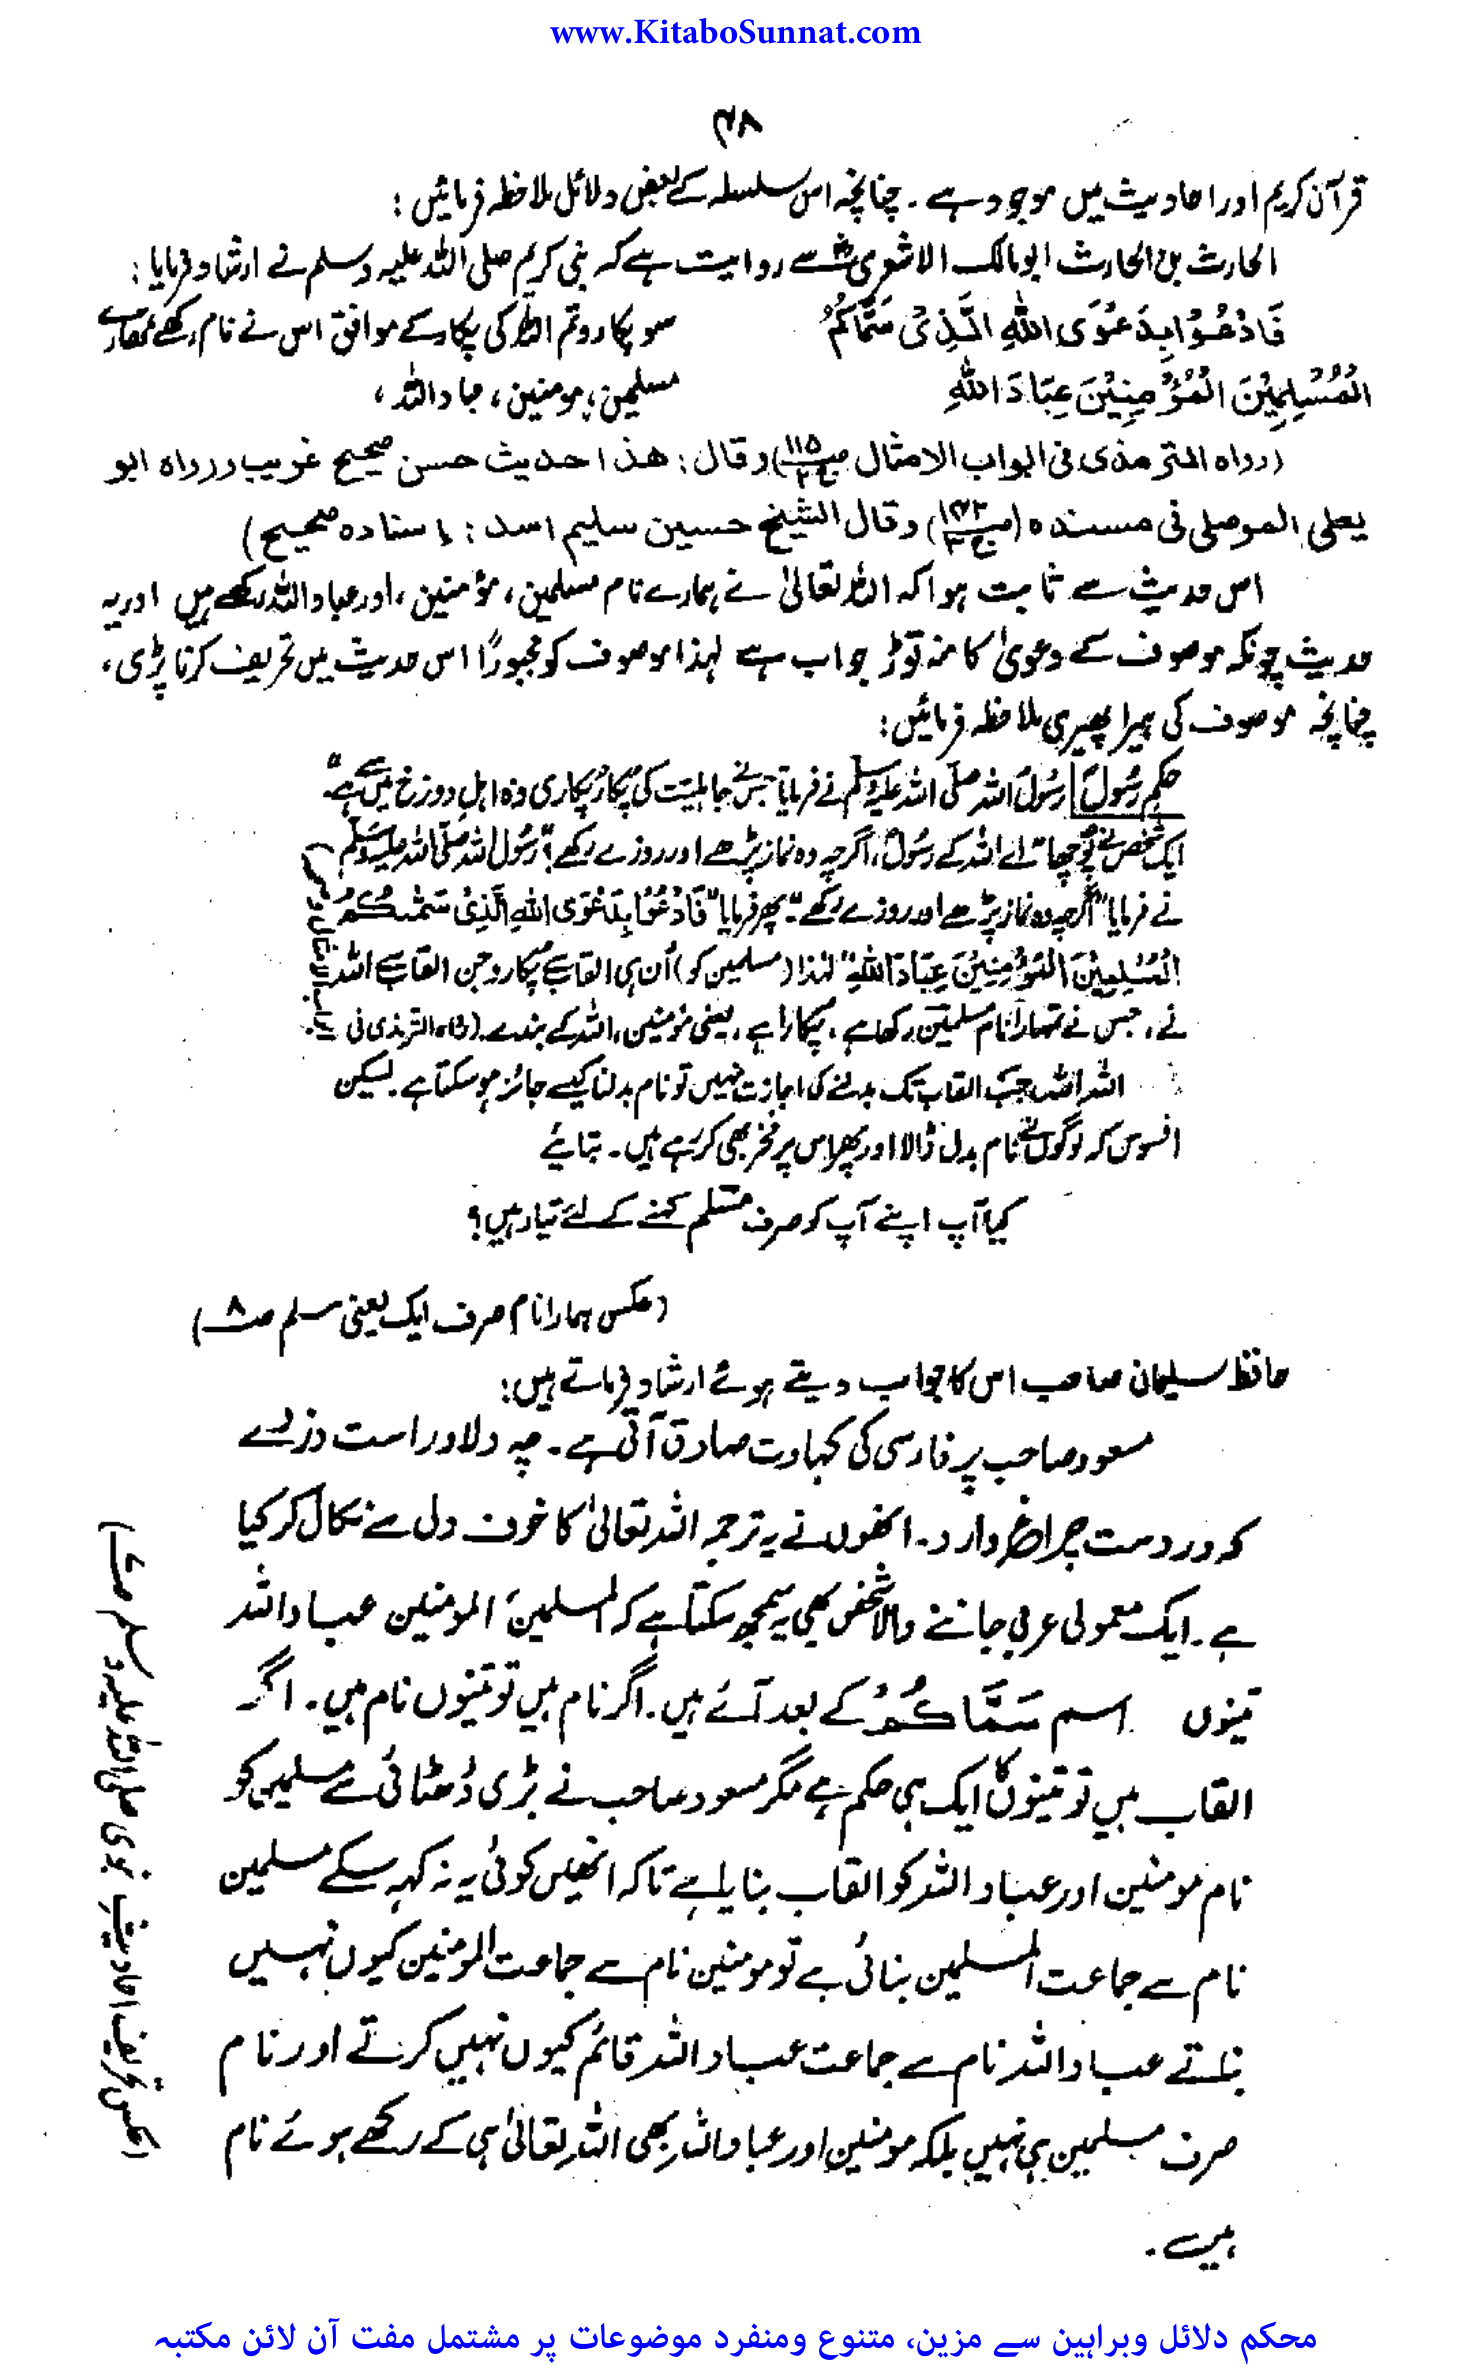 www.KitaboSunnat.com
۴۸
قرآن کریم اور احادیث میں موجود ہے۔ چنانچہ اس سلسلہ کے بعض دلائل ملاحظہ فرمائیں:
الحارث بن الحارث ابو مالک الاشعریؓ سے روایت ہے کہ نبی کریم صلی اللہ علیہ وسلم نے ارشاد فرمایا:
فَادْعُوْا بِدَعْوَی اللّٰہِ الَّذِیْ سَمَّاکُمُ سو پکارو تم اللہ کی پکار کے موافق اس نے نام رکھے تمھارے
الْمُسْلِمِیْنَ الْمُؤْمِنِیْنَ عِبَادَ اللّٰہِ مسلمین، مومنین، عباد اللہ،
(رواہ الترمذی فی ابواب الامثال ص۱۱۵ ج۲) وقال: ھذا حدیث حسن صحیح غریب ورواہ ابو
یعلی الموصلی فی مسندہ (ص۱۴۲ ج۳) وقال الشیخ حسین سلیم اسد: اسنادہ صحیح)
اس حدیث سے ثابت ہوا کہ اللہ تعالیٰ نے ہمارے نام مسلمین، مؤمنین، اور عباد اللہ رکھے ہیں اور یہ
حدیث چونکہ موصوف کے دعویٰ کا منہ توڑ جواب ہے لہذا موصوف کو مجبوراً اس حدیث میں تحریف کرنا پڑی،
چنانچہ موصوف کی ہیرا پھیری ملاحظہ فرمائیں:
حکم رسُولؐ رسُول اللہ صلّی اللہ علیہ وسلّم نے فرمایا جس نے جاہلیت کی پکار پکاری وہ اہلِ دوزخ میں سے ہے"
ایک شخص نے پوچھا "اے اللہ کے رسُولؐ، اگرچہ وہ نماز پڑھے اور روزے رکھے؟" رسُول اللہ صلی اللہ علیہ وسلم
نے فرمایا "اگرچہ وہ نماز پڑھے اور روزے رکھے"۔ پھر فرمایا "فَادْعُوْا بِدَعْوَی اللّٰہِ الَّذِیْ سَمّٰىکُمُ
الْمُسْلِمِیْنَ الْمُؤْمِنِیْنَ عِبَادَ اللّٰہِ" لہٰذا (مسلمین کو) اُن ہی القاب سے پکارو جن القاب سے اللہ
نے، جس نے تمہارا نام مسلمین رکھا ہے، پکارا ہے، یعنی مؤمنین، اللہ کے بندے۔ (رواہ الترمذی فی
ابواب الامثال
اللہ اللہ جب القاب تک بدلنے کی اجازت نہیں تو نام بدلنا کیسے جائز ہو سکتا ہے۔ لیکن
افسوس کہ لوگوں نے نام بدل ڈالا اور پھر اس پر فخر بھی کر رہے ہیں۔ بتائیے
کیا آپ اپنے آپ کو صرف مسلم کہنے کے لئے تیار ہیں؟
(عکس ہمارا نام صرف ایک یعنی مسلم ص۸)
حافظ سلیمان صاحب اس کا جواب دیتے ہوئے ارشاد فرماتے ہیں:
مسعود صاحب پر فارسی کی کہاوت صادق آتی ہے۔ چہ دلاور است دزدے
کہ در دست چراغ دارد۔ انھوں نے یہ ترجمہ اللہ تعالیٰ کا خوف دل سے نکال کر کیا
ہے۔ ایک معمولی عربی جاننے والا شخص بھی یہ سمجھ سکتا ہے کہ المسلمین المومنین عباد اللہ
تینوں اسم سَمَّاکُمُ کے بعد آئے ہیں۔ اگر نام ہیں تو تینوں نام ہیں۔ اگر
القاب ہیں تو تینوں کا ایک ہی حکم ہے مگر مسعود صاحب نے بڑی ڈھٹائی سے مسلمین کو
نام مومنین اور عباد اللہ کو القاب بنایا ہے تاکہ انھیں کوئی یہ نہ کہہ سکے مسلمین
نام سے جماعت المسلمین بنائی ہے تو مومنین نام سے جماعت المومنین کیوں نہیں
بناتے عباد اللہ نام سے جماعت عباد اللہ قائم کیوں نہیں کرتے اور نام
صرف مسلمین ہی نہیں بلکہ مومنین اور عباد اللہ بھی اللہ تعالیٰ ہی کے رکھے ہوئے نام
ہیں۔
(عکس تحریف احادیث نبوی صلی اللہ علیہ وسلم
محکم دلائل وبراہین سے مزین، متنوع ومنفرد موضوعات پر مشتمل مفت آن لائن مکتبہ